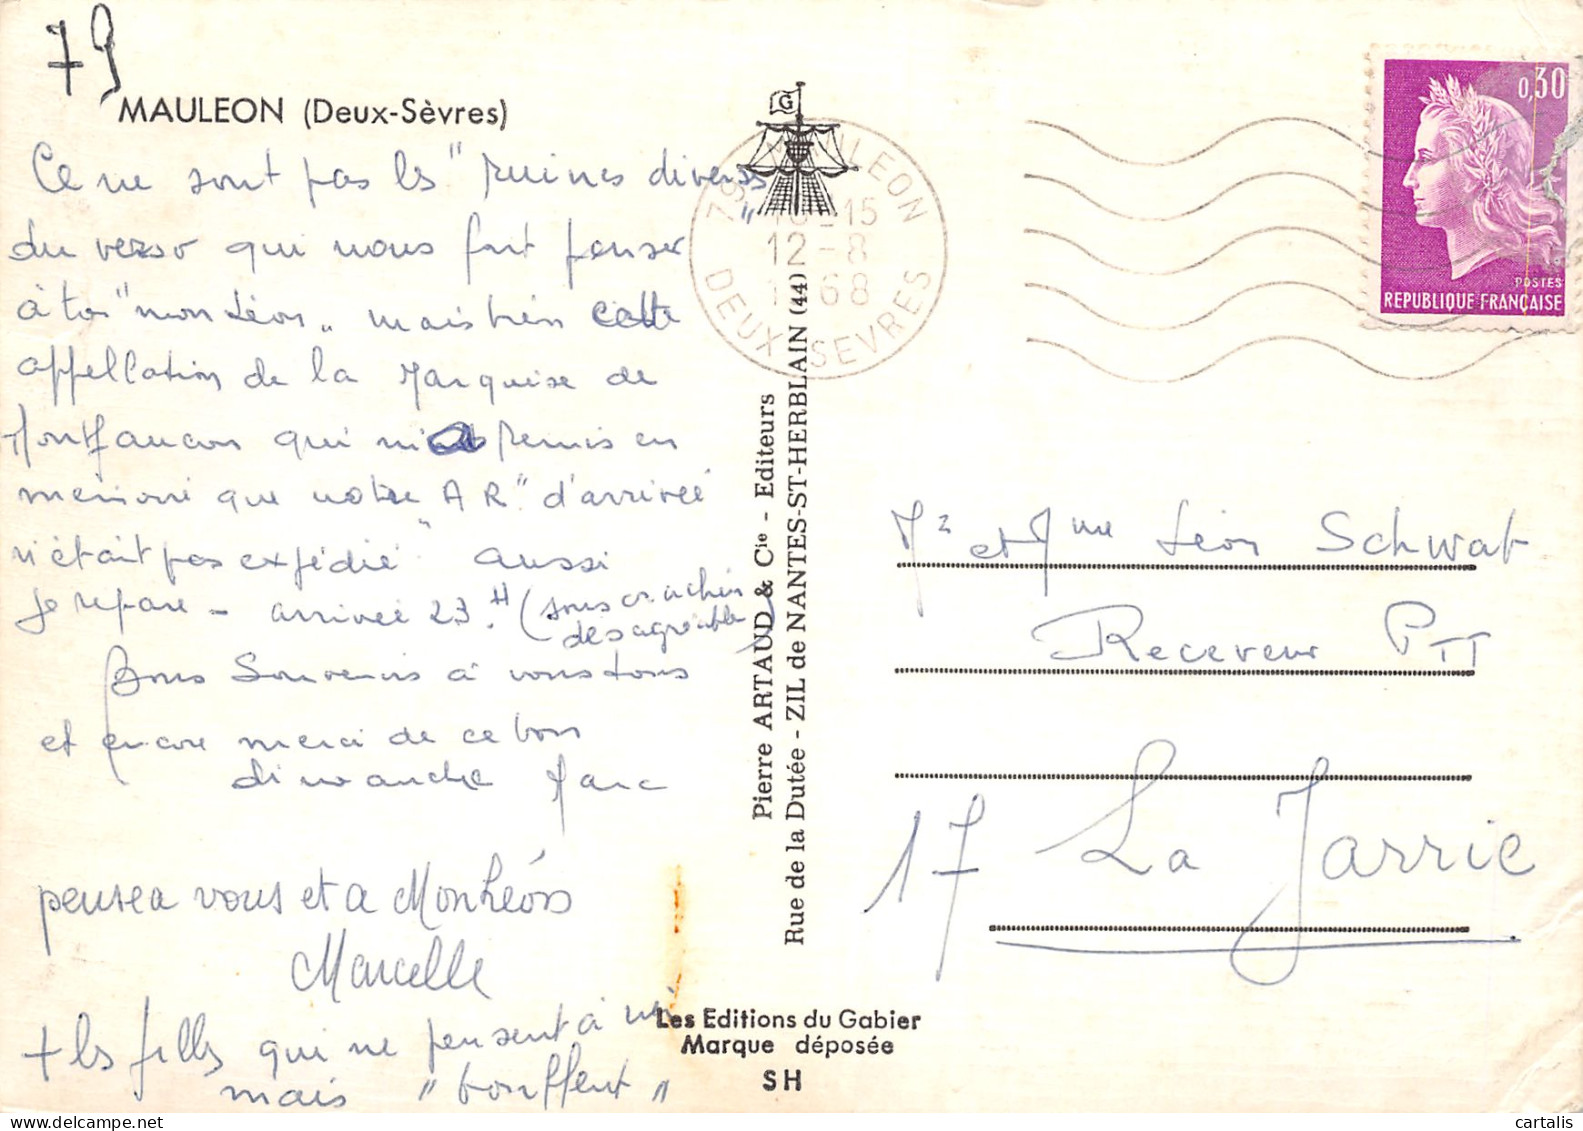 79
MAULEON (Deux-Sèvres)
Ce ne sont pas les "ruines diverses"
du verso qui nous fait penser
à toi "mon Léon" mais bien cette
appellation de la Marquise de
Montfaucon qui m'a remis en
mémoire que notre "A R." d'arrivée
n'était pas expédié aussi
je répare - arrivée 23 H. (sous crachin
désagréable)
Bons Souvenirs à vous tous
et encore merci de ce bon
dimanche Marc
pensea vous et a Monléon
Marcelle
+ les filles qui ne pensent à
mais "bouffent"
G
79 MAULEON
DEUX SEVRES
-15
12-8
1968
0,30
POSTES
REPUBLIQUE FRANÇAISE
Pierre ARTAUD & Cie - Editeurs
Rue de la Dutée - ZIL de NANTES-ST-HERBLAIN (44)
Mr et Mme Léon Schwab
Receveur PTT
17 La Jarrie
Les Editions du Gabier
Marque déposée
SH
www.delcampe.net
cartalis